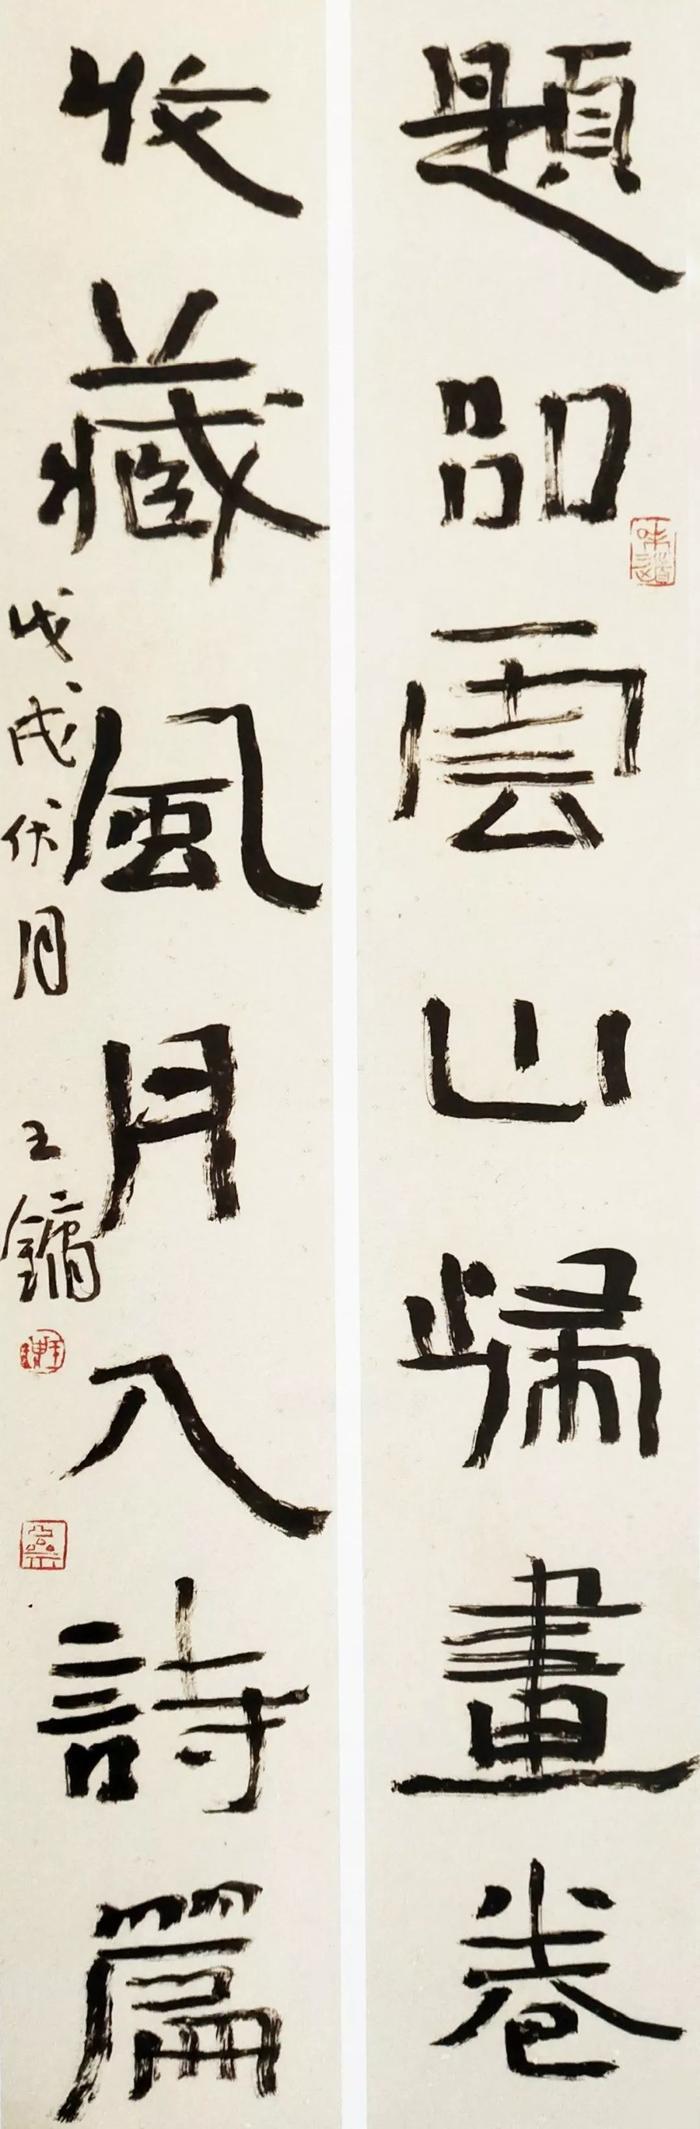 題品雲山歸畫卷
收藏風月入詩篇
戊戌伏月 王鏞